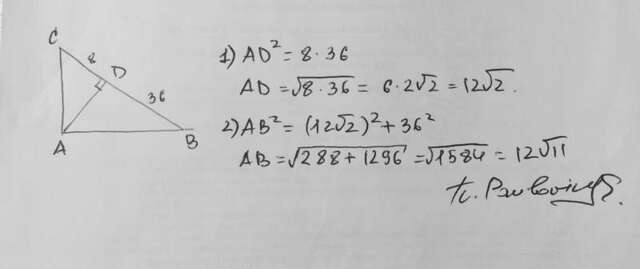 C
8
D
36
A
B
1) AD² = 8 · 36
AD = √(8 · 36) = 6 · 2√2 = 12√2.
2) AB² = (12√2)² + 36²
AB = √(288 + 1296) = √1584 = 12√11